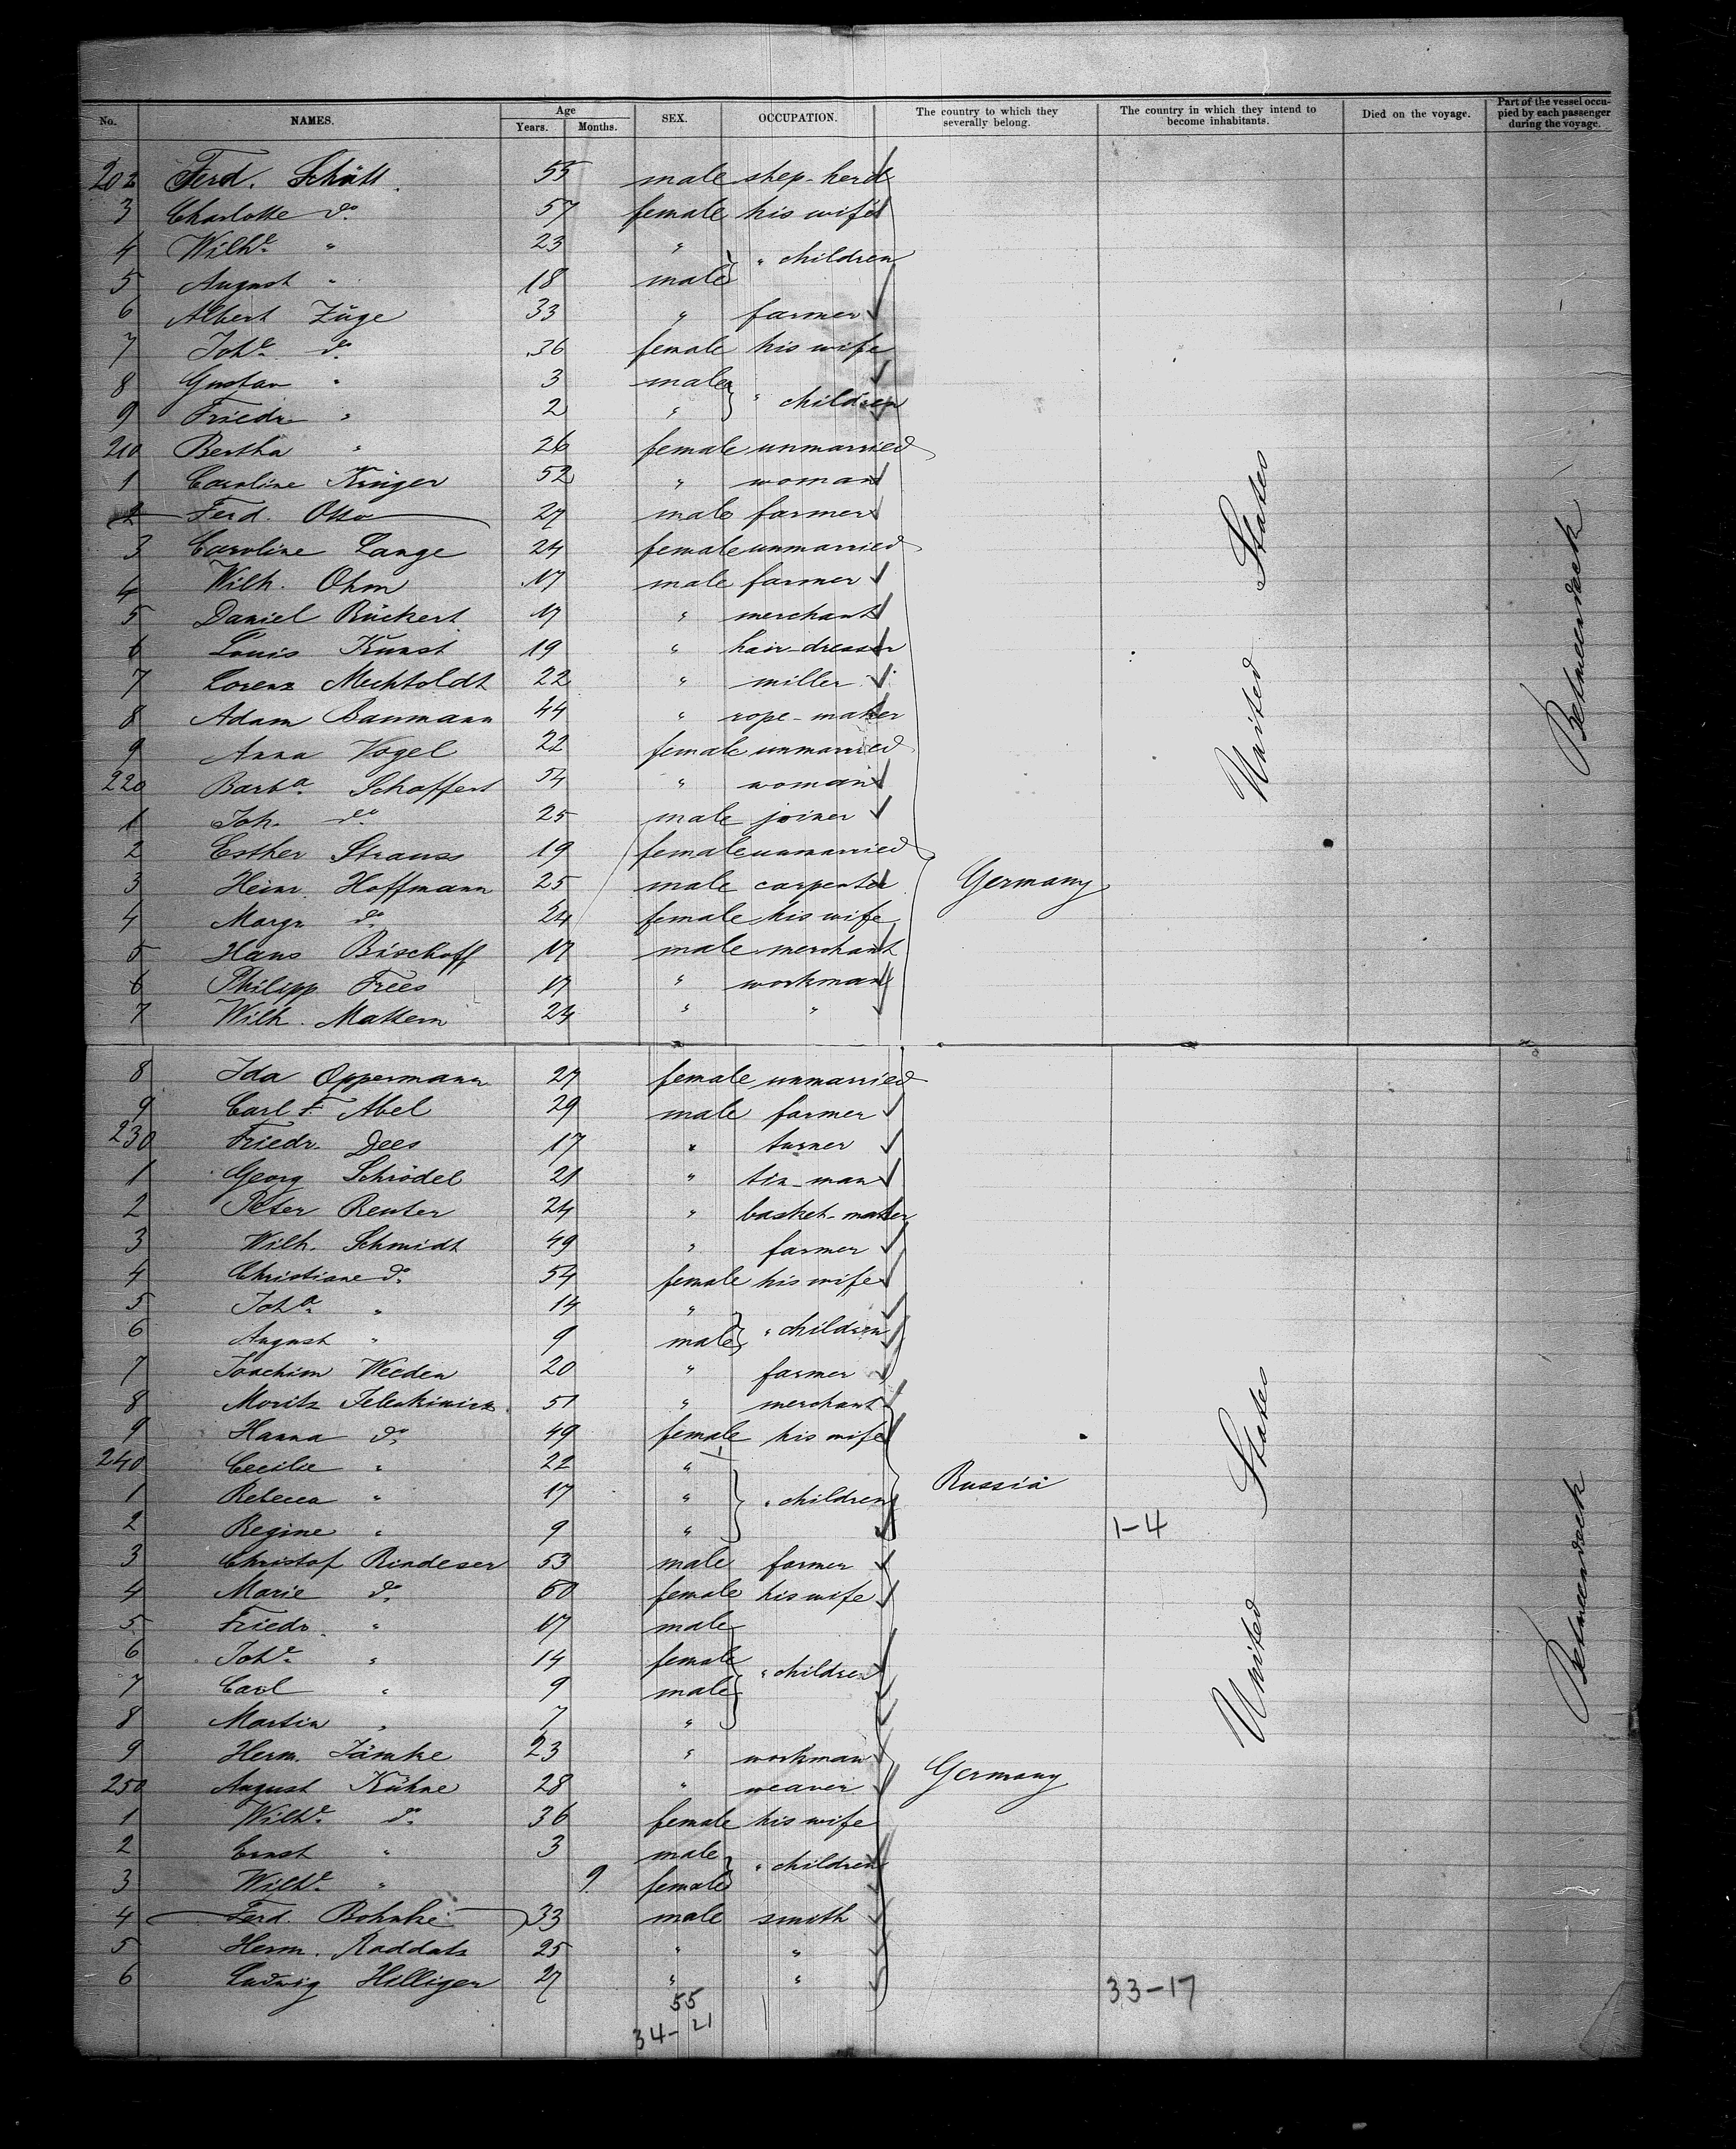 No. NAMES. Age Years. Months. SEX. OCCUPATION. The country to which they severally belong. The country in which they intend to become inhabitants. Died on the voyage. Part of the vessel occupied by each passenger during the voyage.
202 Ferd. Schütt 55 male shep-herd
3 Charlotte do 57 female his wife
4 Wilhe " 23 " " children
5 August " 18 male
6 Albert Züge 33 " farmer
7 Johe do 36 female his wife
8 Gustav " 3 male " children
9 Friedr " 2 "
210 Bertha " 26 female unmarried
1 Caroline Krüger 52 " woman
2 Ferd. Otto 27 male farmer
3 Caroline Lange 24 female unmarried
4 Wilh. Ohm 17 male farmer
5 Daniel Rückert 17 " merchant
6 Louis Kunst 19 " hair-dresser
7 Lorenz Mechtoldt 22 " miller
8 Adam Baumann 44 " rope-maker
9 Anna Vogel 22 female unmarried
220 Barba Schaffert 54 " woman
1 Joh. do 25 male joiner
2 Esther Strauss 19 female unmarried
3 Heinr. Hoffmann 25 male carpenter Germany
4 Margr. do 24 female his wife
5 Hans Bischoff 17 male merchant
6 Philipp Frees 17 " workman
7 Wilh. Mattern 24 " "
United States
Betweendeck
8 Ida Oppermann 27 female unmarried
9 Carl F. Abel 29 male farmer
230 Friedr. Dees 17 " turner
1 Georg Schrödel 21 " tin-man
2 Peter Reuter 24 " basket-maker
3 Wilh. Schmidt 49 " farmer
4 Christiane do 54 female his wife
5 Joha " 14 " " children
6 August " 9 male
7 Joachim Weeden 20 " farmer
8 Moritz 51 " merchant
9 Hanna do 49 female his wife
240 Cecilie " 22 "
1 Rebecca " 17 " " children Russia
2 Regine " 9 " 1-4
3 Christof Rindeser 53 male farmer
4 Marie do 50 female his wife
5 Friedr. " 17 male
6 Johe " 14 female " children
7 Carl " 9 male
8 Martin " 7 "
9 Herm. Jämke 23 " workman Germany
250 August Kühne 28 " weaver
1 Wilhe do 36 female his wife
2 Ernst " 3 male " children
3 Wilhe " 9 female
4 Ferd. Bohnke 33 male smith
5 Herm. Raddatz 25 " "
6 Ludwig Hilliger 27 " " 33-17
United States
Betweendeck
55
34-21